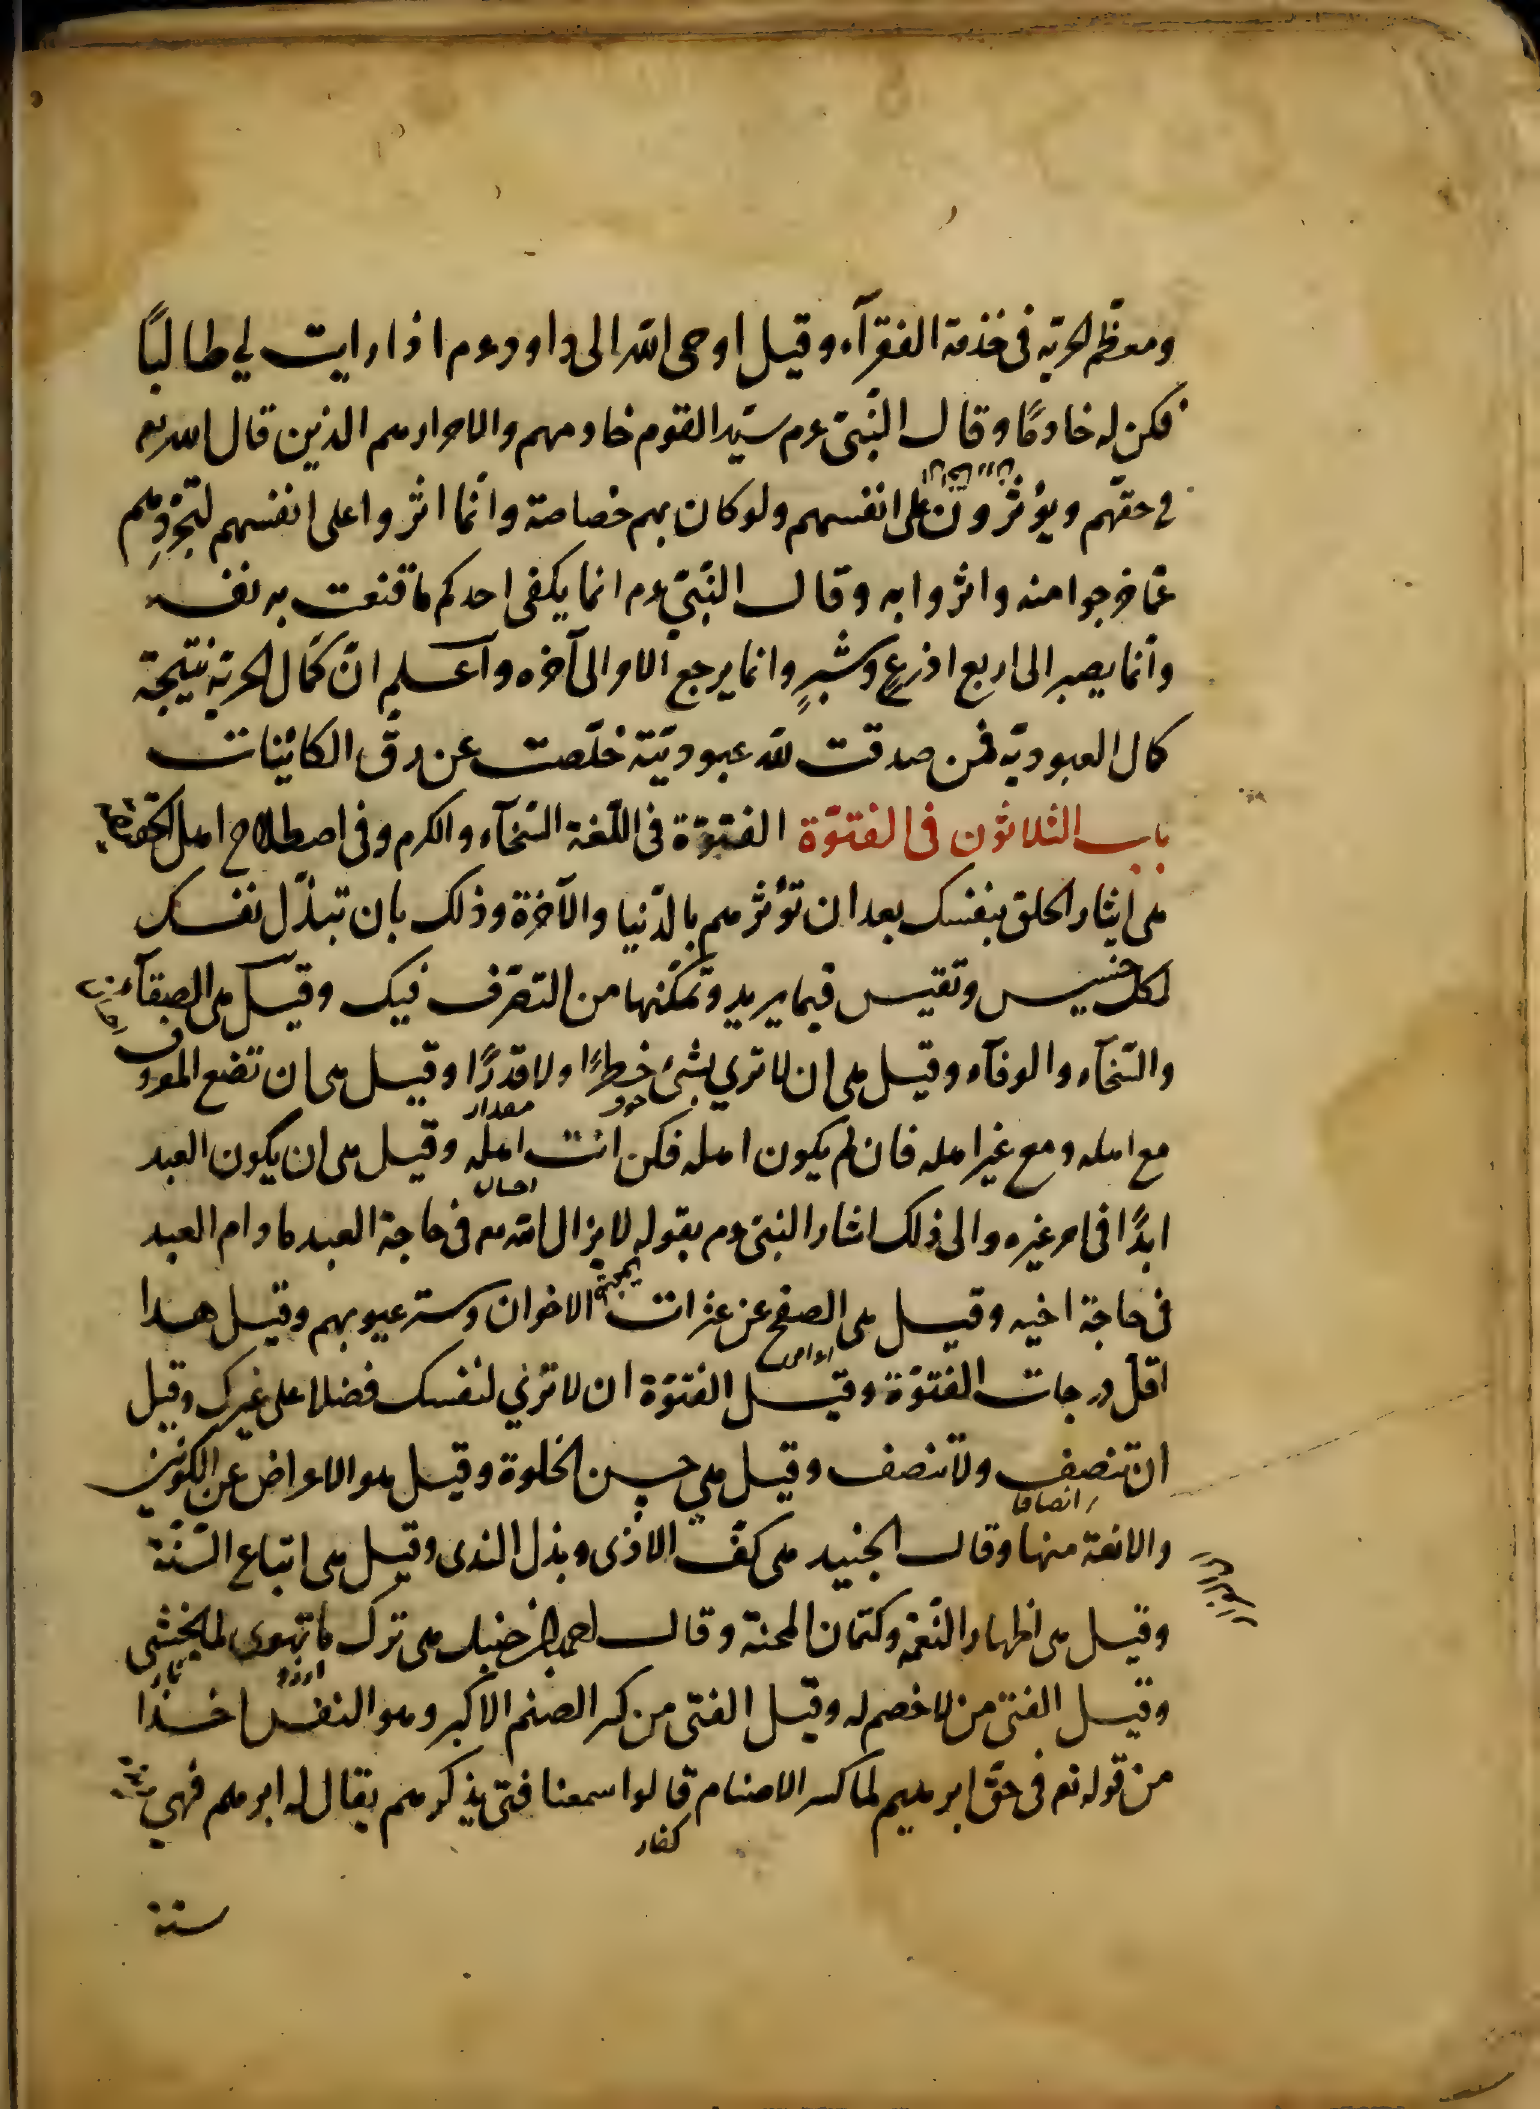 ومعظم الحرية فى خدمة الفقرآء وقيل اوحى الله الى داود عم اذا رايت لي طالبًا
فكن له خادمًا وقال النّبىّ عم سيّد القوم خادمهم والاحرار هم الذين قال الله تع
في حقّهم ويؤثرون على انفسهم ولو كان بهم خصاصة وانّما اثروا على انفسهم لتجرّدهم
عمّا خرجوا منه واثروا به وقال النّبىّ عم انما يكفى احدكم ما قنعت به نفسه
وانّما يصير الى اربع اذرعٍ وشبرٍ وانما يرجع الامر الى آخره وآعلم انّ كمال الحرية نتيجة
كمال العبوديّة فمن صدقت لله عبوديّتة خلّصت عن رقّ الكائنات
باب الثلاثون فى الفتوّة الفتوّة فى اللّغة السّخآء والكرم وفى اصطلاح اهل الحقيقة
هى ايثار الخلق بنفسك بعد ان تؤثرهم بالدّنيا والآخرة وذلك بان تبذّل نفسك
لكل خسيس ونفيس فيما يريد وتمكّنها من التصرّف فيك وقيل هى الصفآء
والسّخآء والوفآء وقيل هى ان لا تري بشئ خطرًا ولا قدرًا وقيل هى ان تضع المعروف
مقدار
مع اهله ومع غير اهله فان لم يكون اهله فكن انت اهله وقيل هى ان يكون العبد
احسان
ابدًا فى امر غيره والى ذلك اشار النبىّ عم بقوله لا يزال الله تع فى حاجة العبد ما دام العبد
فى حاجة اخيه وقيل هى الصفح عن عثرات الاخوان وستر عيوبهم وقيل هدا
اقلّ درجات الفتوّة وقيل الفتوّة ان لا ترٰي لنفسك فضلا على غيرك وقيل
ان تنصف ولا تنصف وقيل هى حسن الخلوة وقيل هو الاعراض عن الكونين
انصافا
والانفة منها وقال الجنيد هى كفّ الاذى وبذل الندى وقيل هى اتباع السّنّة
وقيل هى اظهار النّعمة وكتمان المحنة وقال احمد بن حنبل هى ترك ما تهوى لما تخشى
ارزو
وقيل الفتى من لا خصم له وقيل الفتى من كسر الصنم الاكبر وهو النفس اخذا
من قوله تع فى حقّ ابرهيم لما كسر الاصنام قالوا سمعنا فتى يذكرهم يقال له ابرهيم فهي
كفار
ستة